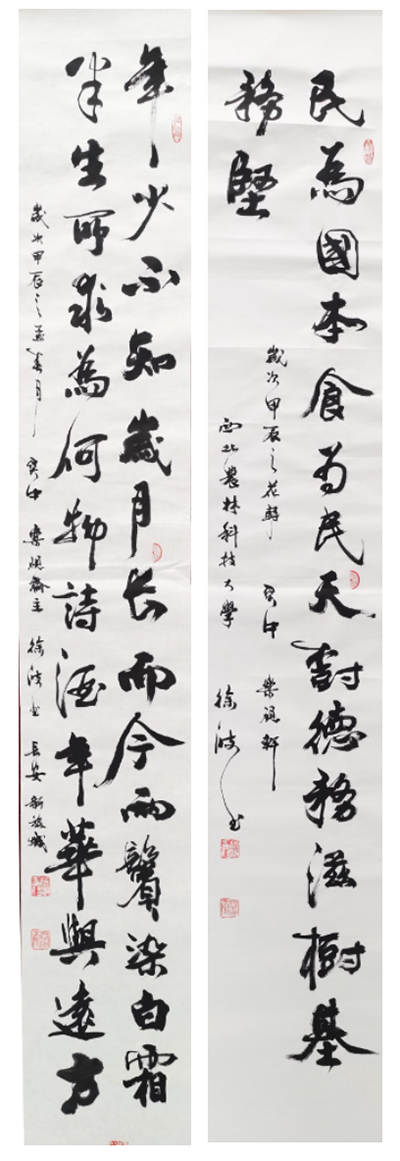 民為國本食為民天樹德務滋樹基
務堅
歲次甲辰之花朝
西北農林科技大學 徐波書
年少不知歲月长而今兩鬢染白霜
半生所求為何物詩酒年華與遠方
歲次甲辰之孟春月 齋主 徐波書 長安新旅城